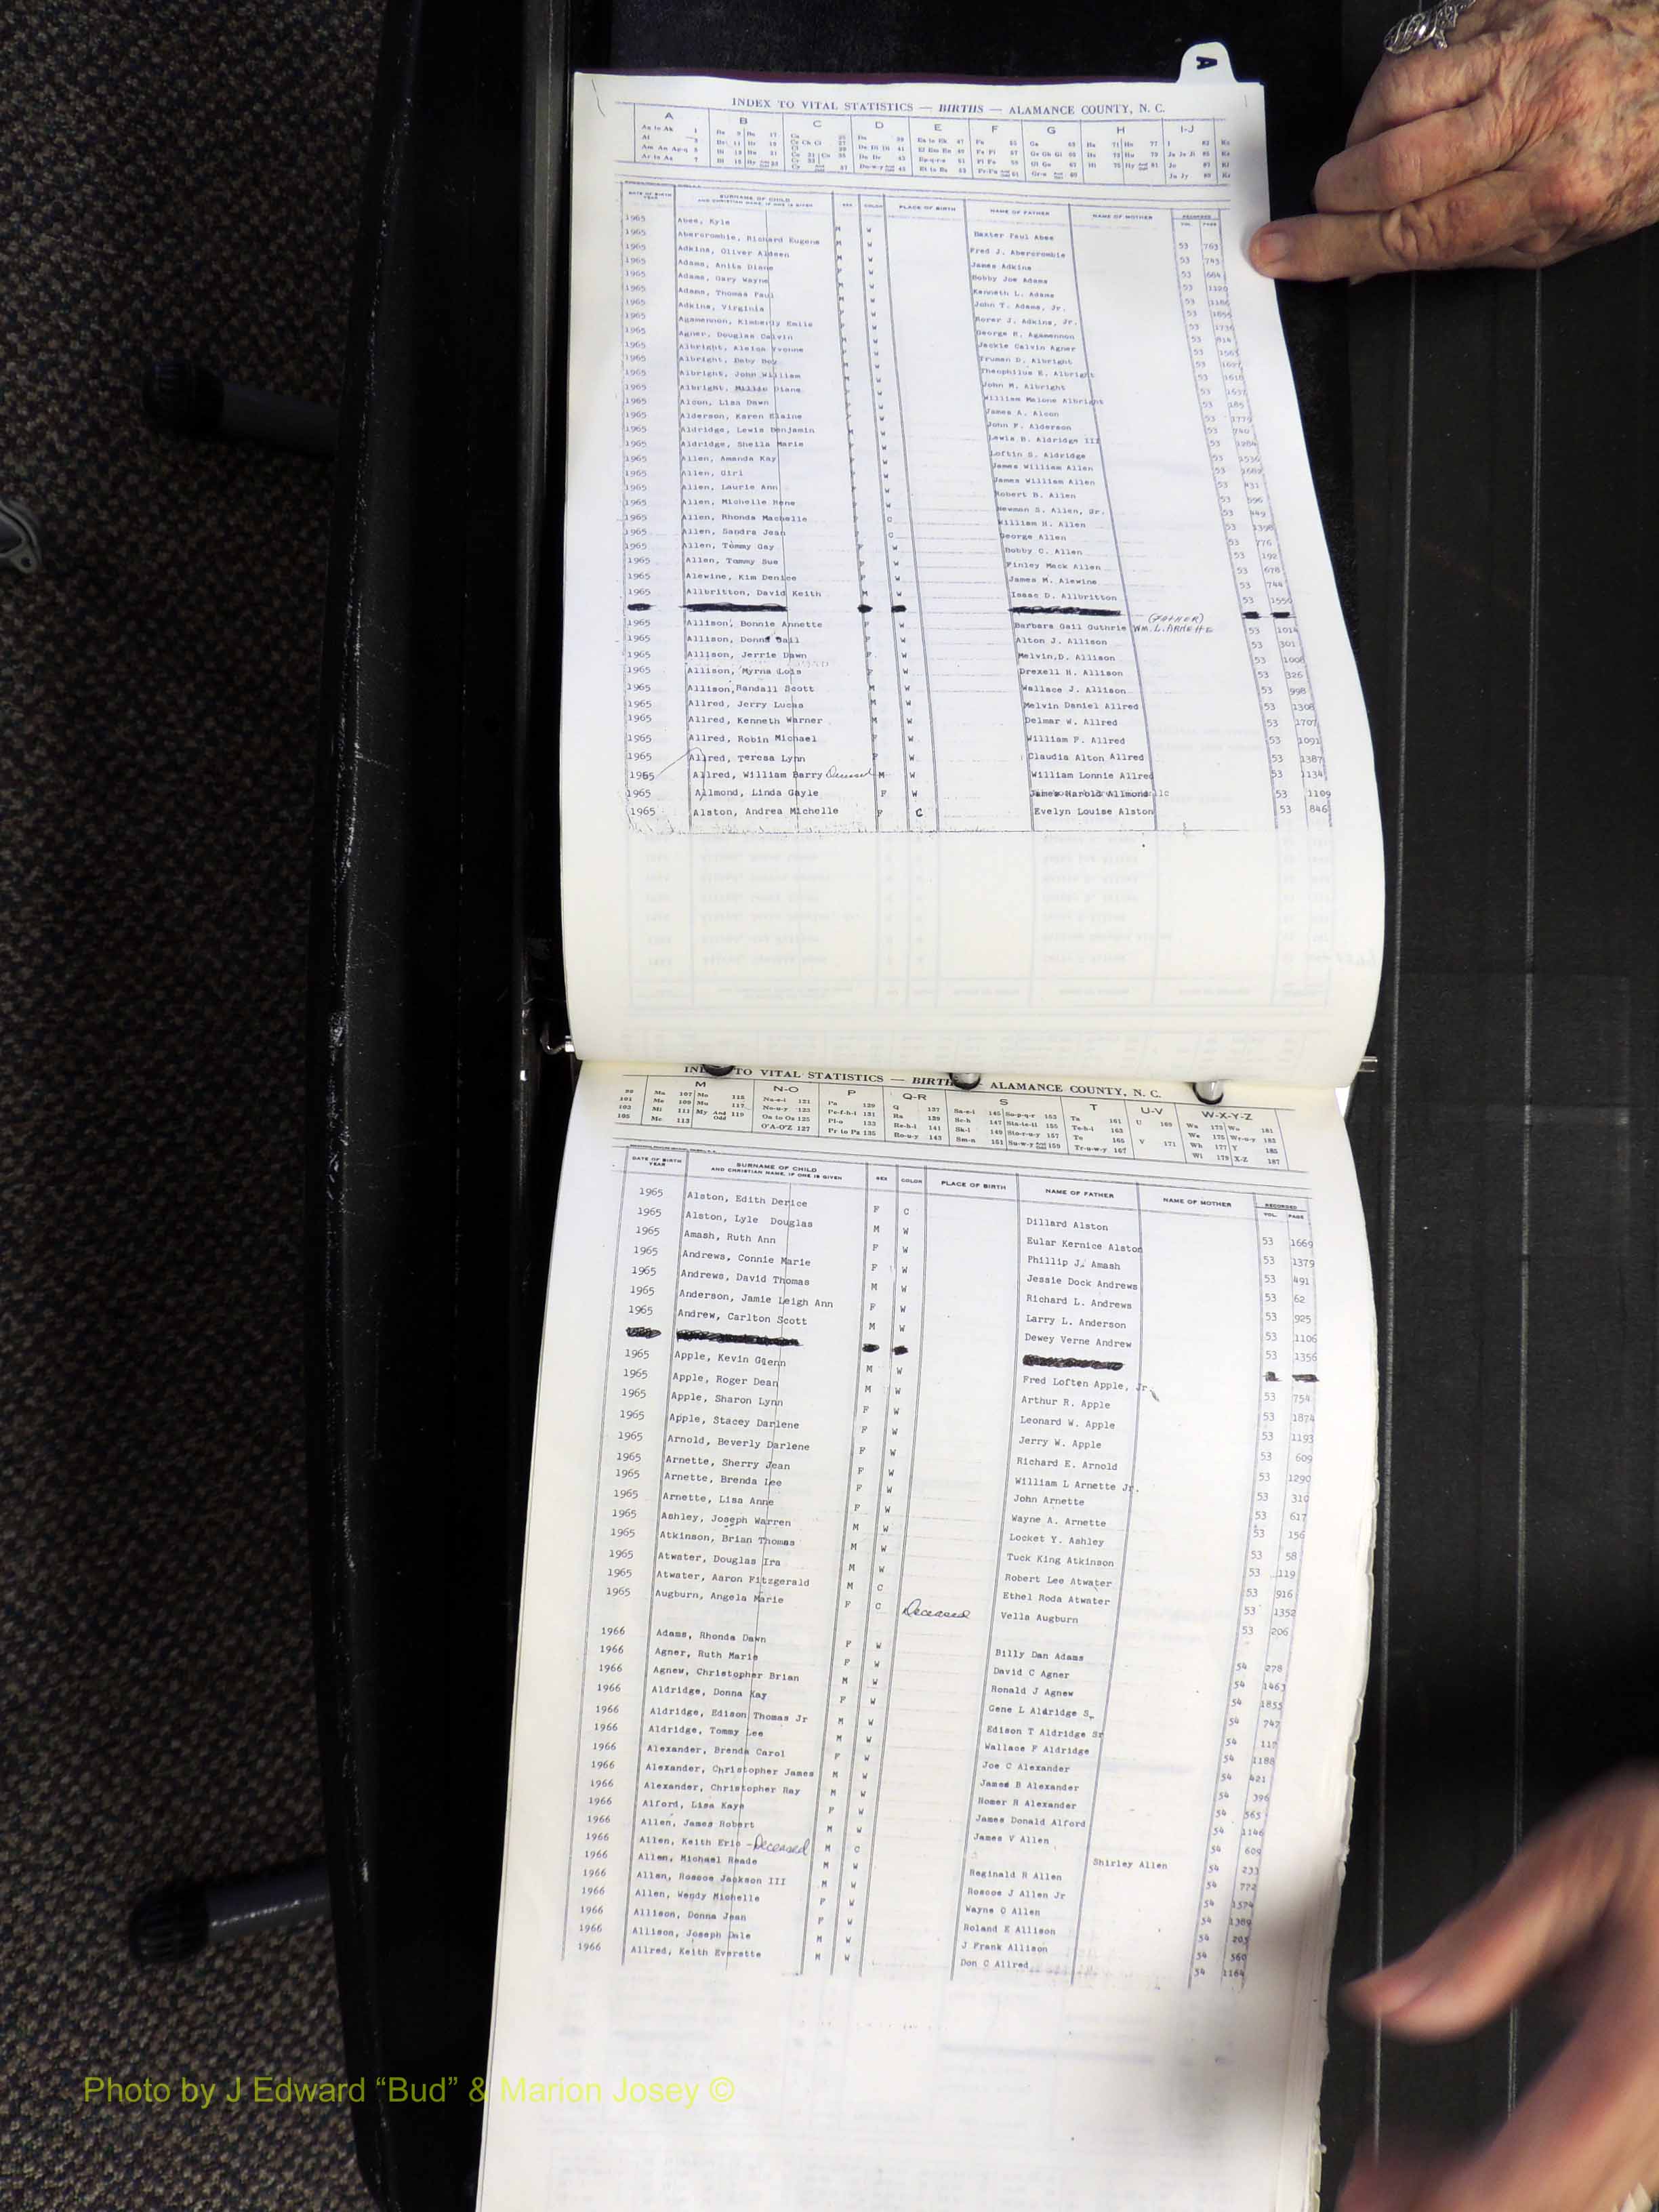 A
INDEX TO VITAL STATISTICS — BIRTHS — ALAMANCE COUNTY, N. C.
A B C D E F G H I-J
DATE OF BIRTH YEAR SURNAME OF CHILD AND CHRISTIAN NAME, IF ONE IS GIVEN SEX COLOR PLACE OF BIRTH NAME OF FATHER NAME OF MOTHER RECORDED VOL. PAGE
1965 Abee, Kyle M W Baxter Paul Abee 53 763
1965 Abercrombie, Richard Eugene M W Fred J. Abercrombie 53 745
1965 Adkins, Oliver Aldeen M W James Adkins 53 664
1965 Adams, Anita Diane F W Bobby Joe Adams 53
1965 Adams, Gary Wayne M W Kenneth L. Adams 53
1965 Adams, Thomas Paul M W John T. Adams, Jr. 53
1965 Adkins, Virginia F W Rorer J. Adkins, Jr. 53
1965 Agamennon, Kimberly Emile F W George R. Agamennon 53
1965 Agner, Douglas Calvin M W Jackie Calvin Agner 53
1965 Albright, Yvonne F W Truman D. Albright 53
1965 Albright, Baby Boy M W Theophilus E. Albright 53
1965 Albright, John William M W John M. Albright 53
1965 Albright, Millie Diane F W William Malone Albright 53
1965 Alcon, Lisa Dawn F W James A. Alcon 53
1965 Alderson, Karen Elaine F W John F. Alderson 53
1965 Aldridge, Lewis Benjamin M W Lewis B. Aldridge III 53
1965 Aldridge, Sheila Marie F W Loftin S. Aldridge 53
1965 Allen, Amanda Kay F W James William Allen 53
1965 Allen, Girl F W James William Allen 53
1965 Allen, Laurie Ann F W Robert B. Allen 53
1965 Allen, Michelle Rene F W Newman S. Allen, Sr. 53
1965 Allen, Rhonda Machelle F C William H. Allen 53 1398
1965 Allen, Sandra Jean F C George Allen 53 776
1965 Allen, Tommy Gay F W Bobby C. Allen 53 192
1965 Allen, Tammy Sue F W Finley Mack Allen 53 678
1965 Alewine, Kim Denice F W James M. Alewine 53 744
1965 Allbritton, David Keith M W Isaac D. Allbritton 53 1550
(FATHER)
1965 Allison, Bonnie Annette F W Barbara Gail Guthrie WM. L. ARNETTE 53 1014
1965 Allison, Donna Gail F W Alton J. Allison 53 301
1965 Allison, Jerrie Dawn F W Melvin D. Allison 53 1006
1965 Allison, Myrna Lois F W Drexell H. Allison 53 326
1965 Allison, Randall Scott M W Wallace J. Allison 53 998
1965 Allred, Jerry Lucas M W Melvin Daniel Allred 53 1308
1965 Allred, Kenneth Warner M W Delmar W. Allred 53 1707
1965 Allred, Robin Michael F W William F. Allred 53 1091
1965 Allred, Teresa Lynn F W Claudia Alton Allred 53 1387
1965 Allred, William Barry Deceased M W William Lonnie Allred 53 1134
1965 Allmond, Linda Gayle F W James Harold Allmond 53 1109
1965 Alston, Andrea Michelle F C Evelyn Louise Alston 53 846
INDEX TO VITAL STATISTICS — BIRTHS — ALAMANCE COUNTY, N. C.
M N-O P Q-R S T U-V W-X-Y-Z
DATE OF BIRTH YEAR SURNAME OF CHILD AND CHRISTIAN NAME, IF ONE IS GIVEN SEX COLOR PLACE OF BIRTH NAME OF FATHER NAME OF MOTHER RECORDED VOL. PAGE
1965 Alston, Edith Derice F C Dillard Alston 53 1669
1965 Alston, Lyle Douglas M W Eular Kernice Alston 53 1379
1965 Amash, Ruth Ann F W Phillip J. Amash 53 491
1965 Andrews, Connie Marie F W Jessie Dock Andrews 53 62
1965 Andrews, David Thomas M W Richard L. Andrews 53 925
1965 Anderson, Jamie Leigh Ann F W Larry L. Anderson 53 1106
1965 Andrew, Carlton Scott M W Dewey Verne Andrew 53 1356
1965 Apple, Kevin Glenn M W Fred Loften Apple, Jr. 53 754
1965 Apple, Roger Dean M W Arthur R. Apple 53 1874
1965 Apple, Sharon Lynn F W Leonard W. Apple 53 1193
1965 Apple, Stacey Darlene F W Jerry W. Apple 53 609
1965 Arnold, Beverly Darlene F W Richard E. Arnold 53 1290
1965 Arnette, Sherry Jean F W William L Arnette Jr. 53 310
1965 Arnette, Brenda Lee F W John Arnette 53 617
1965 Arnette, Lisa Anne F W Wayne A. Arnette 53 156
1965 Ashley, Joseph Warren M W Locket Y. Ashley 53 58
1965 Atkinson, Brian Thomas M W Tuck King Atkinson 53 119
1965 Atwater, Douglas Ira M W Robert Lee Atwater 53 916
1965 Atwater, Aaron Fitzgerald M C Ethel Roda Atwater 53 1352
1965 Augburn, Angela Marie F C Deceased Vella Augburn 53 206
1966 Adams, Rhonda Dawn F W Billy Dan Adams 54 278
1966 Agner, Ruth Marie F W David C Agner 54 1463
1966 Agnew, Christopher Brian M W Ronald J Agnew 54 1855
1966 Aldridge, Donna Kay F W Gene L Aldridge S. 54 747
1966 Aldridge, Edison Thomas Jr M W Edison T Aldridge Sr 54
1966 Aldridge, Tommy Lee M W Wallace F Aldridge 54 1188
1966 Alexander, Brenda Carol F W Joe C Alexander 54 421
1966 Alexander, Christopher James M W James B Alexander 54 396
1966 Alexander, Christopher Ray M W Homer R Alexander 54 565
1966 Alford, Lisa Kaye F W James Donald Alford 54 1146
1966 Allen, James Robert M W James V Allen 54 609
1966 Allen, Keith Eric - Deceased M C Shirley Allen 54 233
1966 Allen, Michael Reade M W Reginald R Allen 54 772
1966 Allen, Roscoe Jackson III M W Roscoe J Allen Jr 54 1574
1966 Allen, Wendy Michelle F W Wayne O Allen 54 1389
1966 Allison, Donna Jean F W Roland E Allison 54 205
1966 Allison, Joseph Dale M W J Frank Allison 54 560
1966 Allred, Keith Everette M W Don C Allred 54 1164
Photo by J Edward “Bud” & Marion Josey ©